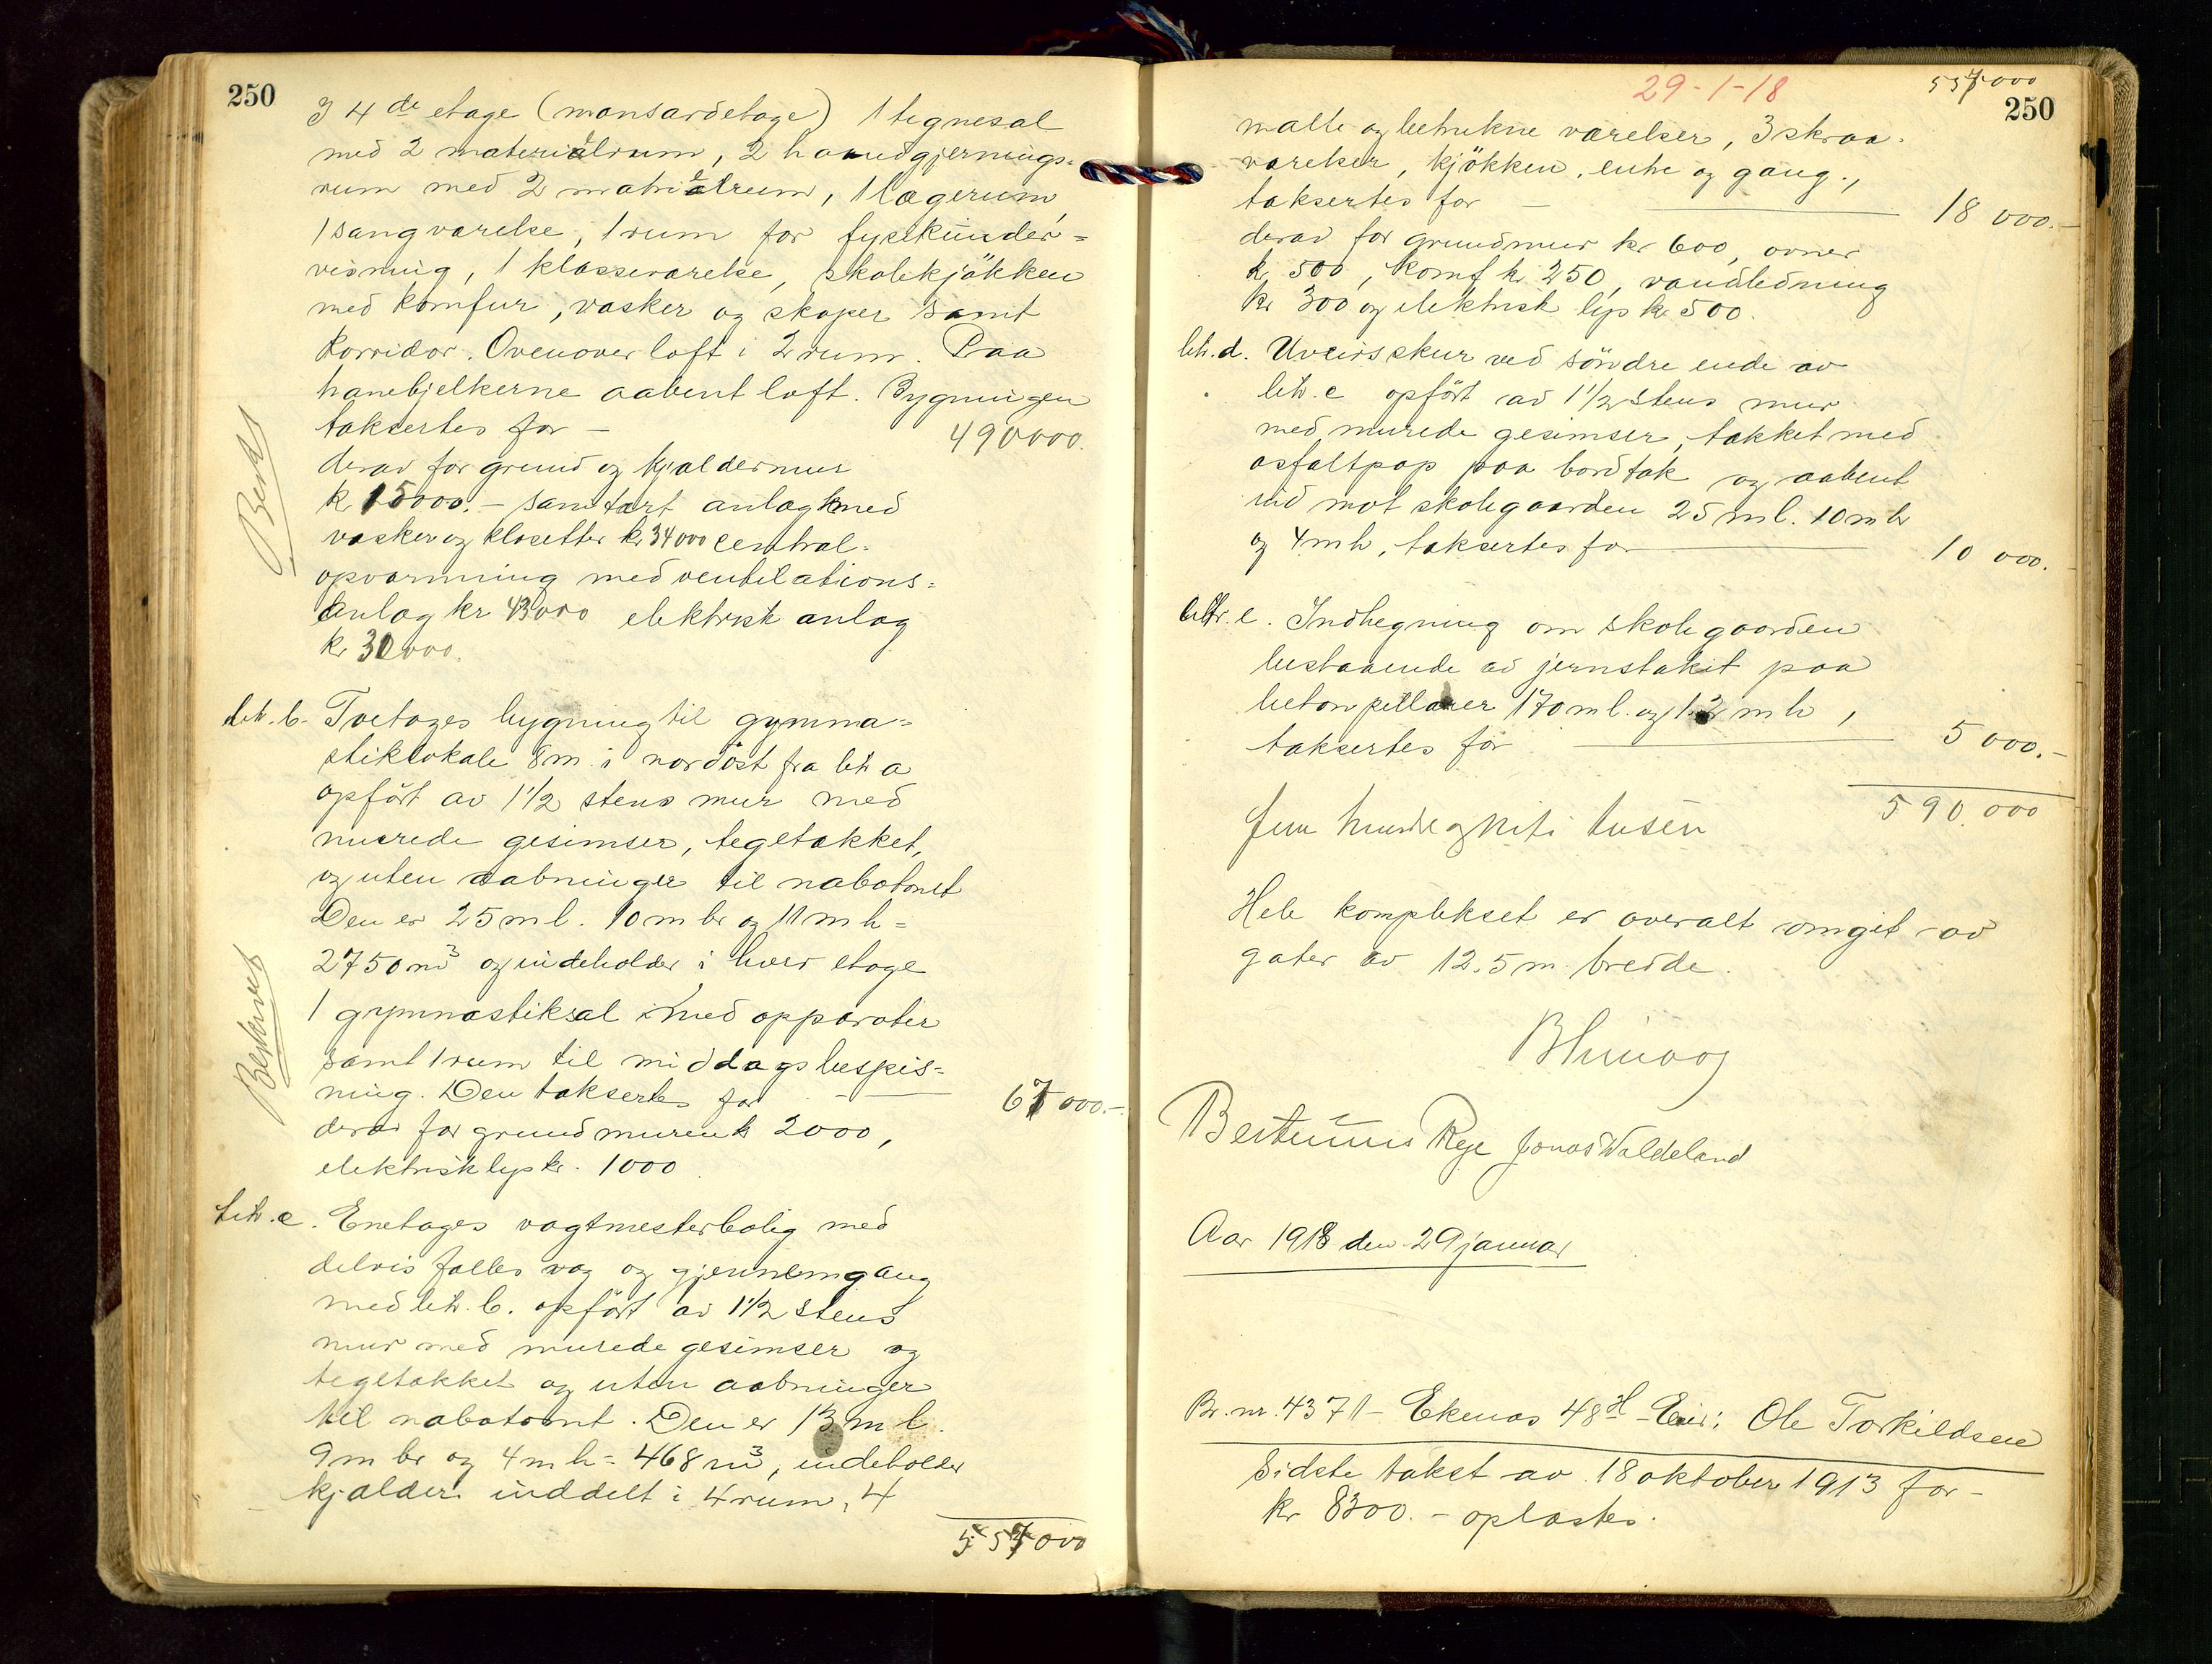 250
I 4de etage (mansardetage) 1 tegnesal
med 2 materialrum, 2 haandgjernings-
rum med 2 matrialrum, 1 lagerum,
1 sangværelse, 1 rum for fysikkunder-
visning, 1 klasseværelse, skolekjøkken
med komfur, vasker og skaper samt
korridor. Ovenover loft i 2 rum. Paa
hanebjelkerne aabent loft. Bygningen
taksertes for — 490000.
derav for grund og kjældermur
kr 15000.- sanitært anlæg med
vasker og klosetter kr 34000 central-
opvarmning med ventilations-
anlæg kr 43000 elektrisk anlæg
kr 30000.
litr. b. Toetages bygning til gymna-
stiklokale 8 m. i nordøst fra litr a
opført av 1 1/2 stens mur med
murede gesimser, tegltækket,
og uten aabninger til nabotomt
Den er 25 m l. 10 m br og 11 m h =
2750 m3 og indeholder i hver etage
1 gymnastiksal med apparater
samt 1 rum til middagsbespis-
ning. Den taksertes for — 67000.-
derav for grundmuren kr 2000,
elektrisk lys kr. 1000
litr. c. Enetages vagtmesterbolig med
delvis fælles væg og gjennemgang
med litr. b. opført av 1 1/2 stens
mur med murede gesimser og
tegltækket og uten aabninger
til nabotomt. Den er 13 m l.
9 m br og 4 m h = 468 m3, indeholder
kjælder inddelt i 4 rum, 4
557000
29-1-18
557000
250
malte og betrukne værelser, 3 skraa-
værelser, kjøkken, entre og gang.,
taksertes for — 18 000.-
derav for grundmur kr 600, ovner
kr. 500, komf kr 250, vandledning
kr 300 og elektrisk lys kr 500.
litr. d. Uveirsskur ved søndre ende av
litr. c opført av 1 1/2 stens mur
med murede gesimser, tækket med
asfaltpap paa bordtak og aabent
ind mot skolegaarden 25 m l. 10 m br
og 4 m h, taksertes for — 10 000.
litr. e. Indhegning om skolegaarden
bestaaende av jernstakit paa
betonpillarer 170 m l. og 1.2 m h,
taksertes for — 5 000.-
590.000
Fem hundre og niti tusen
Hele komplekset er overalt omgit av
gater av 12.5 m bredde.
Bertinius Rege Jonas Waldeland
Aar 1918 den 29 januar
Br. nr. 4371 - Ekenæs 48H - Eier: Ole Torkildsen
Sidste takst av 18 oktober 1913 for -
kr 8300. - oplæstes.